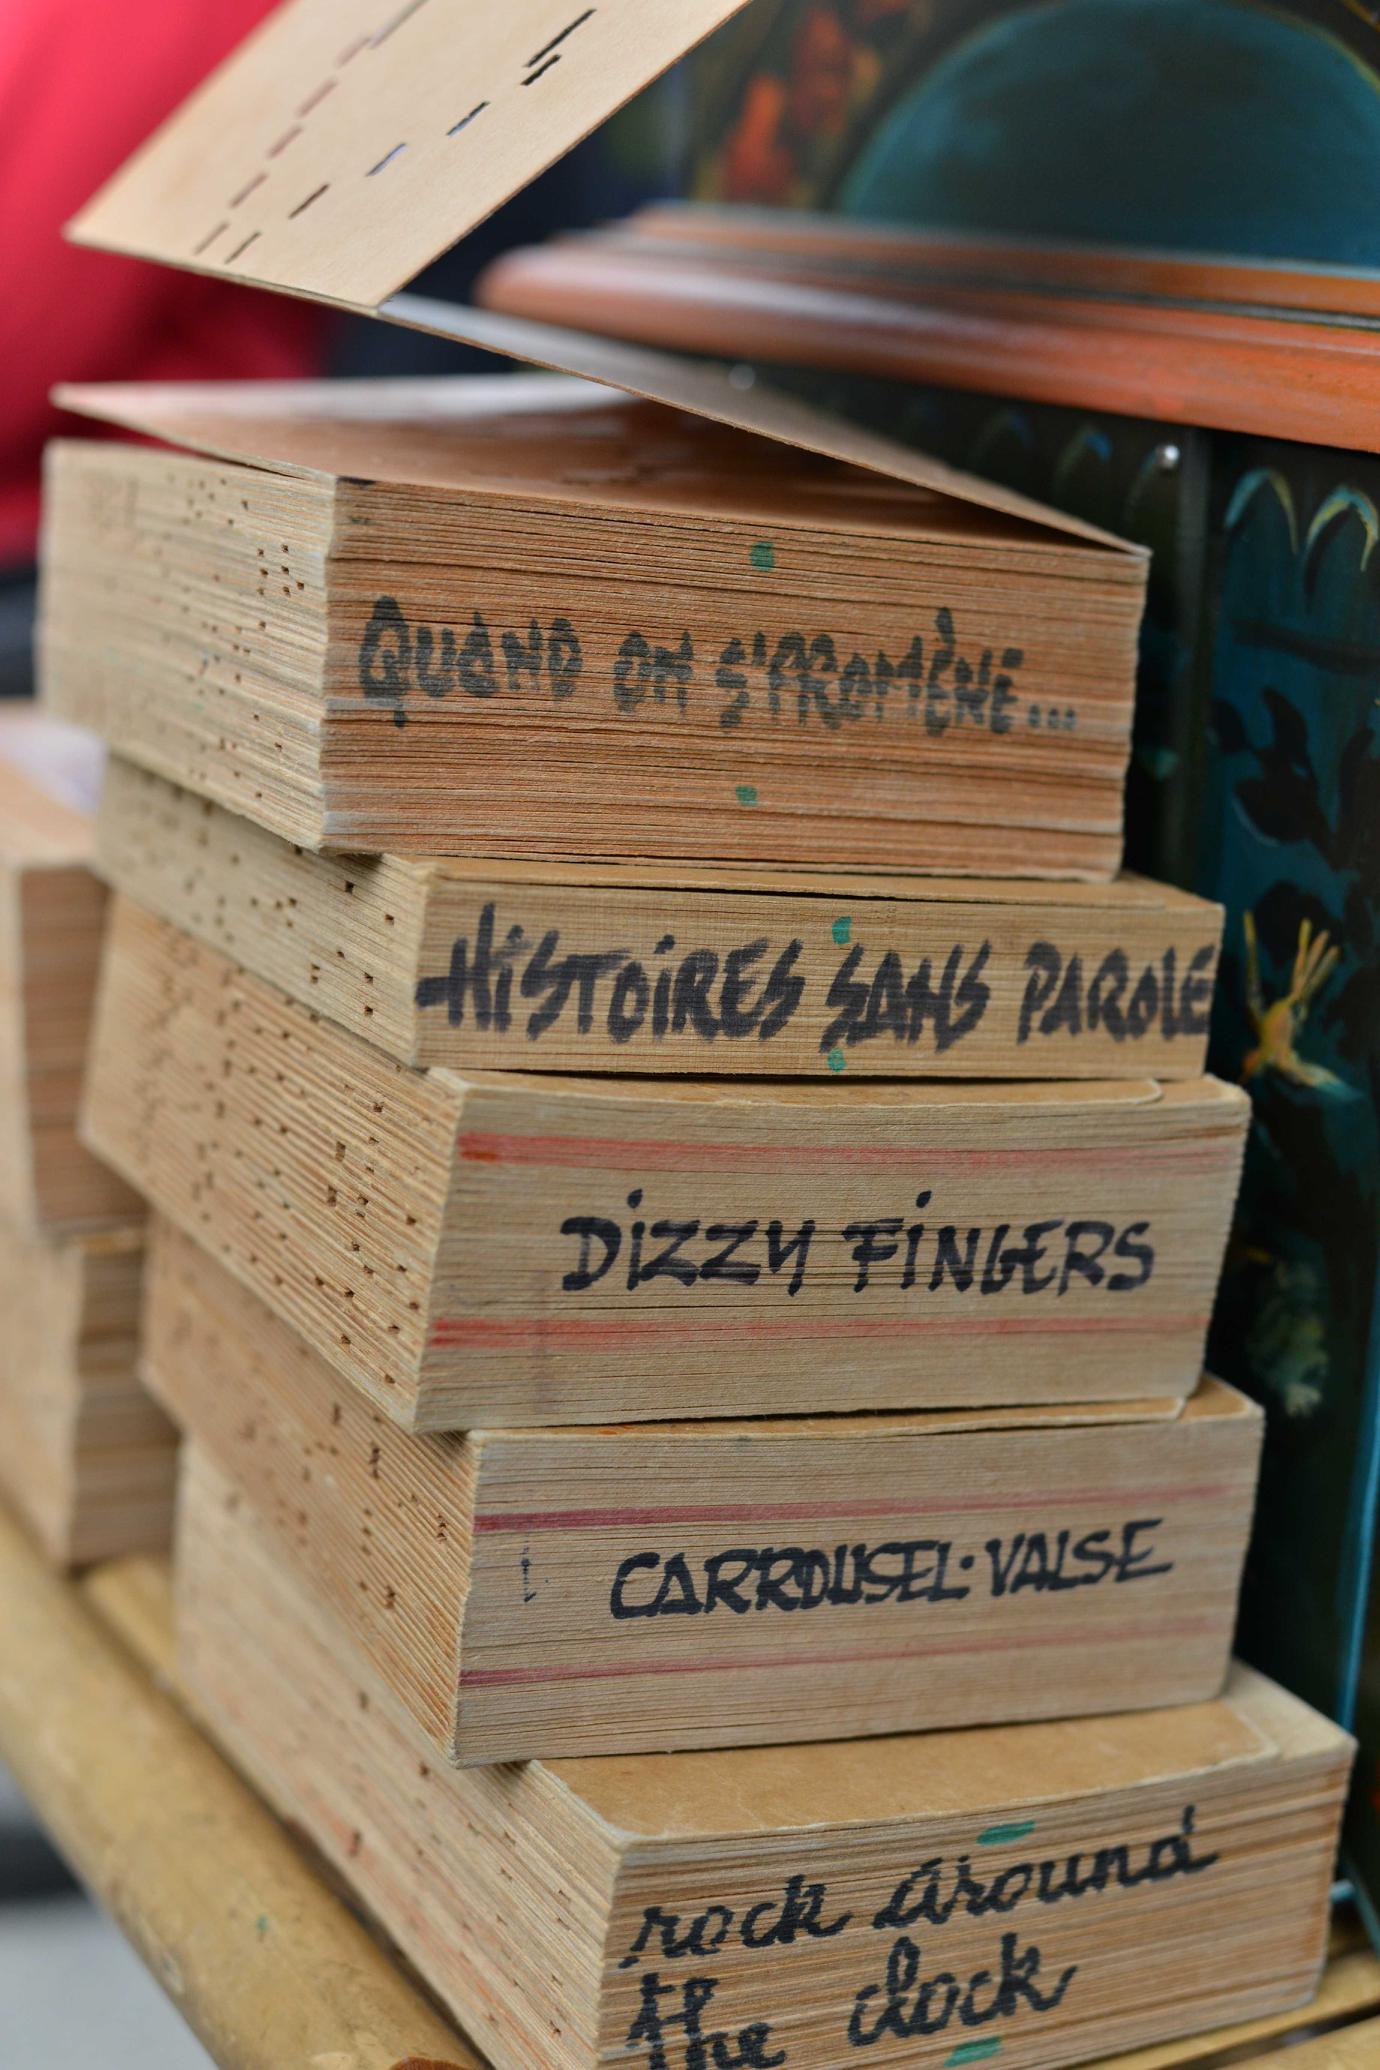 QUAND ON S'PROMÈNE...
HiSTOiRES SANS PAROLE
DiZZY FiNGERS
CARROUSEL·VALSE
rock around
the clock